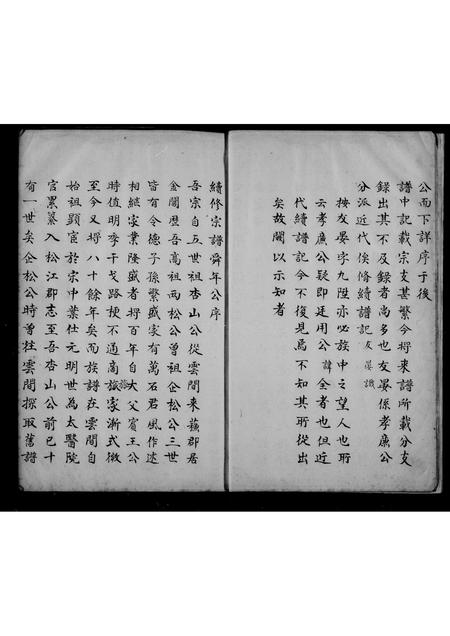 公而下詳序于後
譜中記載宗支甚繁今將来譜所載分支
録出其不及録者尚多也友晏係孝廉公
分派近代俟脩續譜記友晏識
按友晏字九陞亦必族中之望人也所
云孝廉公疑即廷用公諱全者也但近
代續譜記今不復見焉不知其所從出
矣故闕以示知者
續修宗譜舜年公序
吾宗自五世祖杏山公從雲間来蘓郡居
金閶歴吾高祖西松公曽祖企松公三世
皆有令德子孫繁盛家有萬石君風作述
相継家業隆盛者捋百年自大父賓王公
時值明季干戈路梗不通商旅家漸式微
至今又捋八十餘年矣而族譜在雲間自
始祖顯宦於宗中葉仕元明世為太醫院
官累纂入松江郡志至吾杏山公前已十
有一世矣企松公時曽往雲間探取舊譜